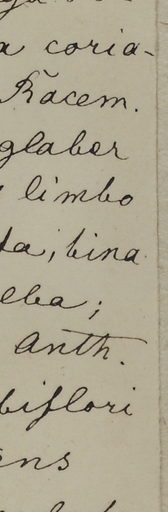 a coria-
Racem.
glaber
limbo
ta; bina
eba;
Anth.
biflori
ens